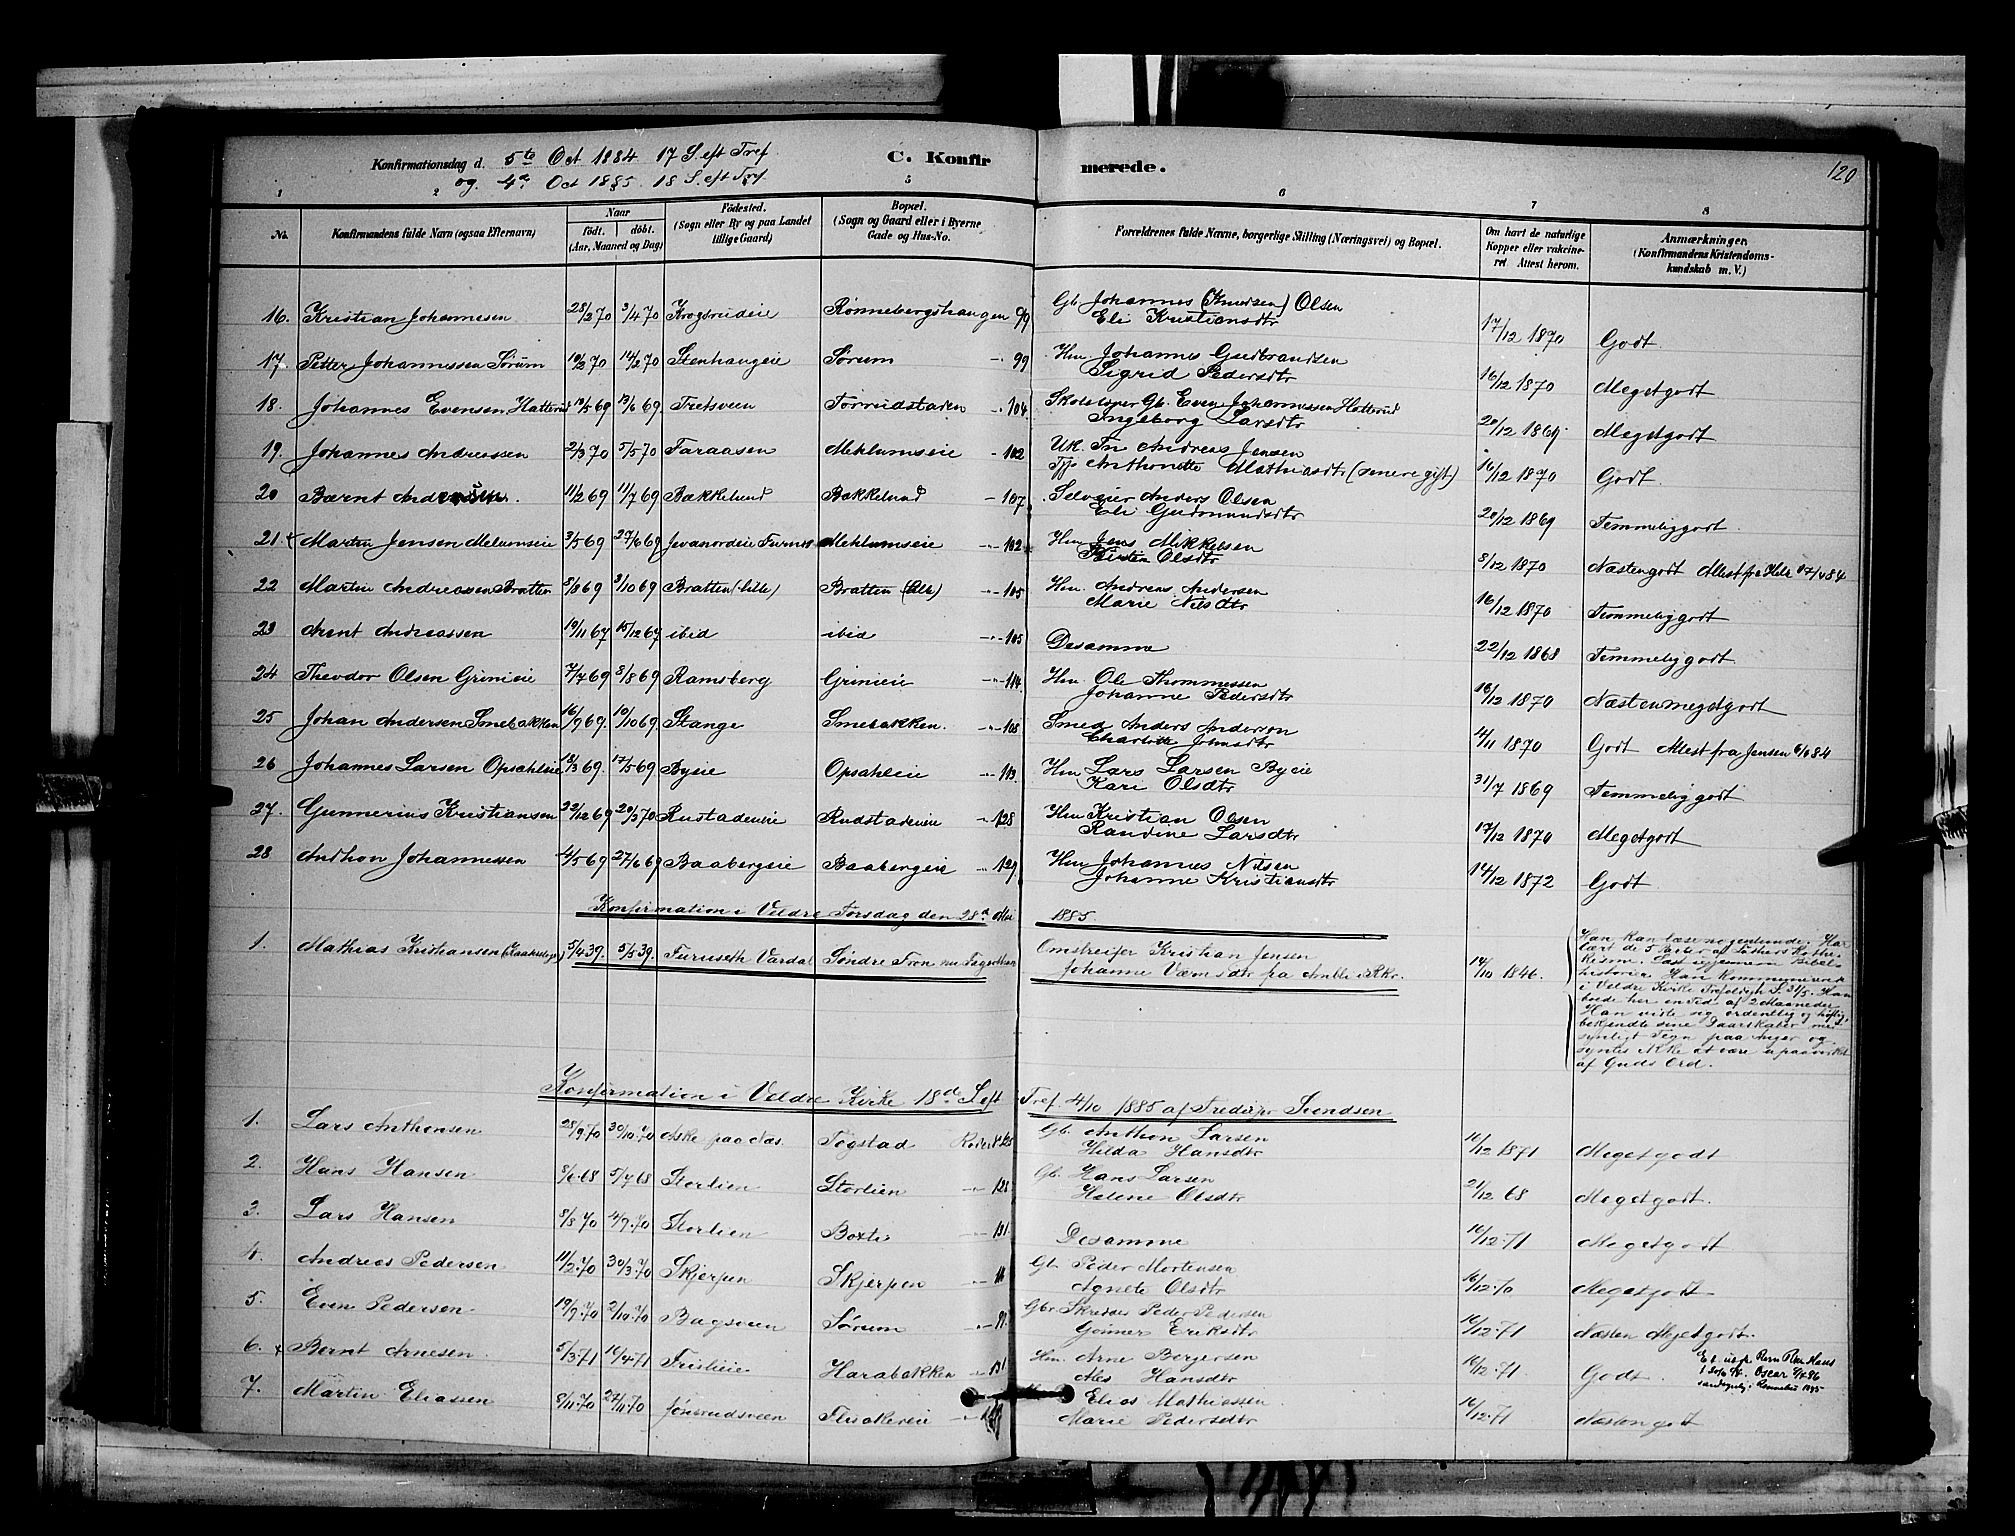 Konfirmationsdag d. 5te Oct 1884 17 S. eft Tref. C. Konfirmerede. 120
og 4de Oct 1885. 18 S. eft Tref.
1 2 5 6 7 8
No. Konfirmandens fulde Navn (ogsaa Efternavn) Naar født. døbt. (Aar, Maaned og Dag) Fødested. (Sogn eller By og paa Landet tillige Gaard) Bopæl. (Sogn og Gaard eller i Byerne Gade og Hus-No. Forældrenes fulde Navne, borgerlige Stilling (Næringsvei) og Bopæl. Om havt de naturlige Kopper eller vakcineret Attest herom. Anmærkninger (Konfirmandens Kristendomskundskab m. V.)
16. Kristian Johannesen 28/2 70 3/4 70 Krogsrudeie Rønnebergshaugen 99 Gb. Johannes (Knudsen) Olsen
Eli Kristiansdtr 17/12 1870 Godt
17. Petter Johannessen Sørum 10/2 70 14/2 70 Stenhaugeie Sørum 99 Hm. Johannes Gudbrandsen
Sigrid Pedersdtr 16/12 1870 Megetgodt
18. Johannes Evensen Hatterud 19/5 69 13/6 69 Tretsveen Torrudstaden 104 Gb. Even Johannessen Hatterud
Ingeborg Larsdtr 20/12 1869 Megetgodt
19. Johannes Andreassen 2/3 70 5/5 70 Faraasen Mehlumseie 102 Uk. Tn Andreas Jensen
Tjp Anthonette Mathiasdtr (senere gift) 16/12 1870 Godt
20 Bærnt Andersen 11/2 69 11/7 69 Bækkelund Bækkelund 107 Selveier Anders Olsen
Eli Gudmundsdtr 20/12 1869 Temmeliggodt
21. Martin Jensen Melumseie 3/5 69 27/6 69 Jevanordeie Furnes Mehlumseie 102 Hm Jens Mikkelsen
Kirstin Olsdtr 8/12 1870 Næstengodt
22 Martin Andreassen Bratten 8/8 69 3/10 69 Bratten (lille) Bratten (lille) 105 Hm. Andreas Andersen
Marie Nilsdtr 16/12 1870 Temmeliggodt
23 Arent Andreassen 19/11 67 15/12 67 ibid ibid 105 Desamme 22/12 1868 Temmeliggodt
24 Theodor Olsen Grinieie 7/7 69 8/8 69 Ramsberg Grinieie 114 Hm. Ole Thommessen
Johanne Pedersdtr 16/12 1870 Næstenmegetgodt
25 Johan Andersen Smebakken 16/9 69. 10/10 69 Stange Smebakken. 108 Smed Anders Anderson
Charlotte Johnsdtr 4/11 1870 Godt Attest fra Jensen 6/10 84
26 Johannes Larsen Opsahleie 18/3 69. 17/5 69 Byeie Opsahleie 113 Hm Lars Larsen Byeie
Kari Olsdtr 31/7 1869 Temmeliggodt
27. Gunnerius Kristiansen 22/12 69 20/2 70 Rustadeie Rudstadeie 128 Hm Kristian Olsen
Randine Larsdtr 17/12 1870 Megetgodt
28 Anthon Johannessen 4/5 69 27/6 69 Baabergeie Baabergeie 129 Hm Johannes Nilsen
Johanne Kristiansdtr 14/12 1872 Godt.
Konfirmation i Veldre Torsdag den 28de Mai 1885.
1. Mathias Kristiansen 5/4 39. 5/5 39. Furuseth Vardal Søndre Fron Omstreifer Kristian Jensen
Johanne 14/10 1846.
Han kan læse nogenlunde. Har
lært de 5 Parter af Luthers Kathe-
kisme. Læst igjennem Bibel-
historie. Han kommunicerede
i Veldre Kirke S. 31/5. Han
boede her en Tid af 2 Maaneder
Han viste sig ordentlig og høflig
bekjendte sine Daarskaber med
synligt Tegn paa Anger og
syntes ikke at være upaavirket
af Guds Ord.
Konfirmation i Veldre Kirke 18de S. eft Tref. 4/10 1885 af Svendsen
1. Lars Anthonsen 28/9 70 30/10 70 Aske paa Næs. Togstad 128 Gb. Anthon Larsen
Hilda Hansdtr 16/12 1871 Megetgodt
2. Hans Hansen 8/6 68 5/7 68 Storlien Storlien 128 Gb. Hans Larsen
Helene Olsdtr 21/12 68 Megetgodt.
3. Lars Hansen 8/8 70 4/9 70 Storlien 131 Desamme 16/12 71 Megetgodt
4. Andreas Pedersen 11/2 70 30/3 70 Skjerpen Skjerpen Gb. Peder Mortensen
Agnete Olsdtr 16/12 70 Megetgodt
5. Even Pedersen 19/9 70 2/10 70 Bagsveen Sørum Gbr Skredder Peder Pedersen
Eriksdtr 16/12 71 Næsten Megetgodt.
6. Bernt Arnesen 5/3 71 10/4 71 Tristieie Harabakken 131 Hm. Arne Bergersen
Hansdtr 16/12 71 Godt.
7. Martin Eliassen 8/11 70 27/11 70 Elias Mathiassen.
Marie Pedersdtr 16/12 71 Næstengodt